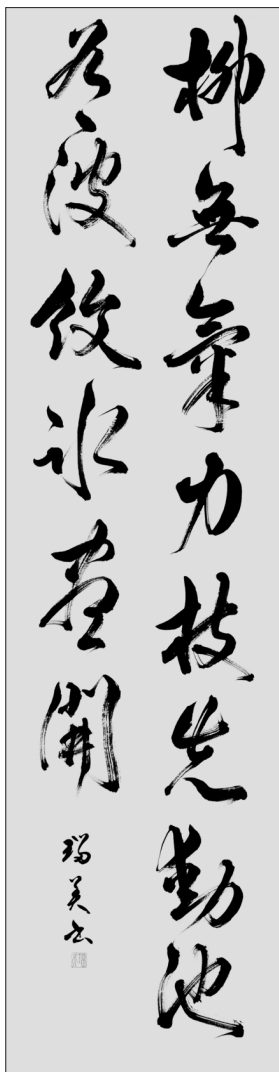 柳無氣力枝先動池
有波紋氷盡開
瑞美書